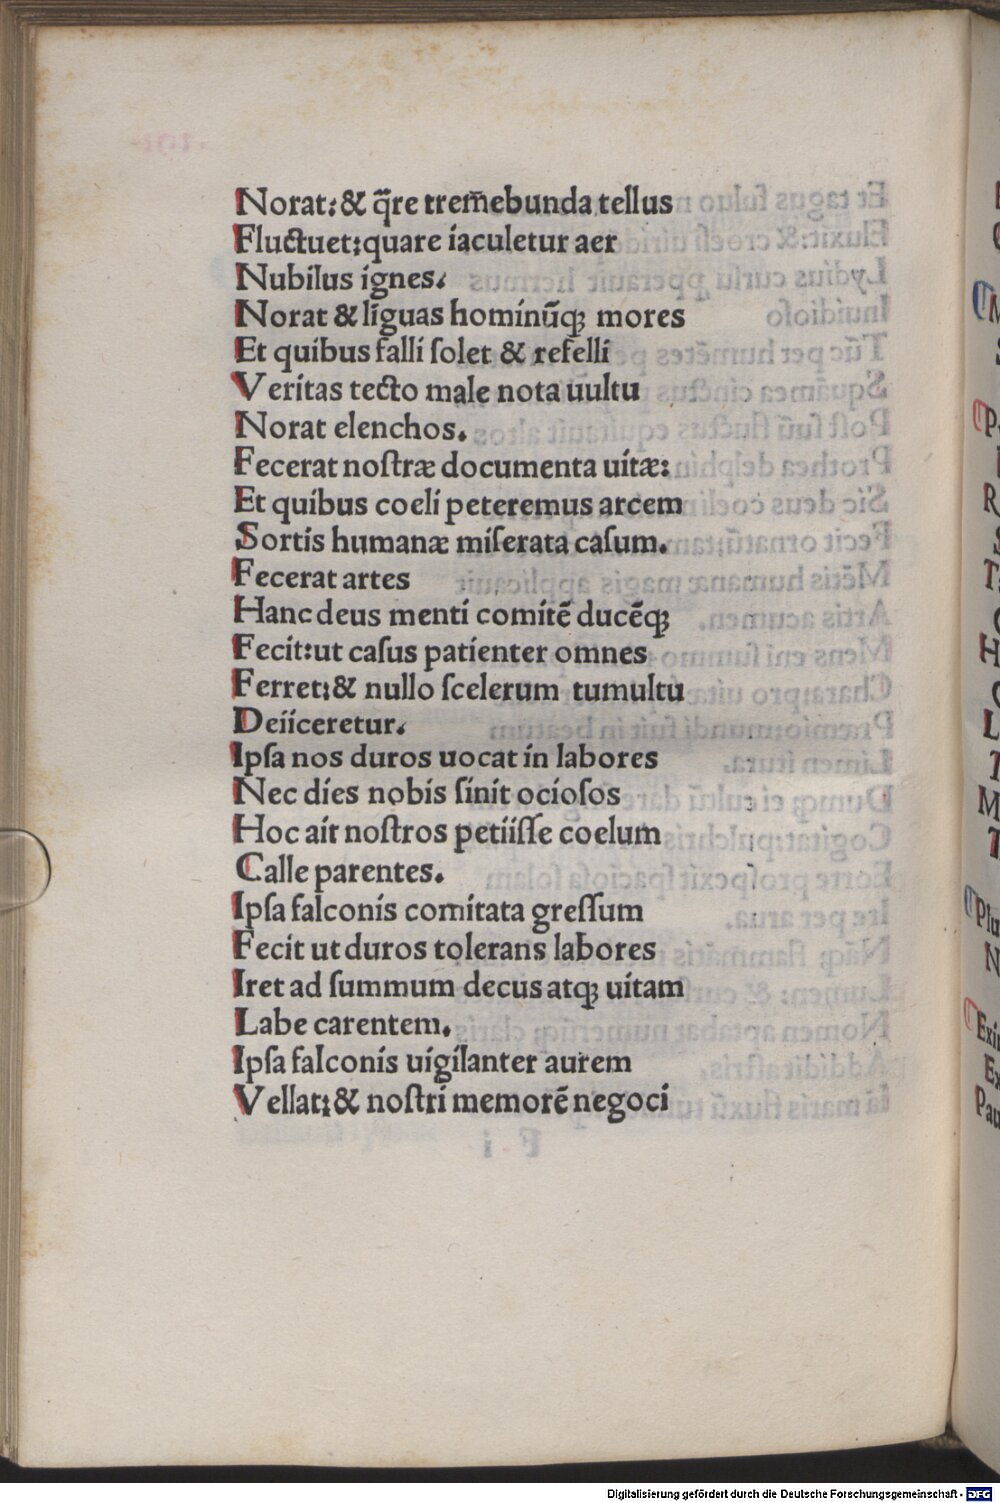 Norat:& q̃re trem̃ebunda tellus
Fluctuet:quare iaculetur aer
Nubilus ignes.
Norat & lĩguas hominũqꝫ mores
Et quibus falli ſolet & refelli
Veritas tecto male nota uultu
Norat elenchos.
Fecerat noſtræ documenta uitæ:
Et quibus coeli peteremus arcem
Sortis humanæ miſerata caſum.
Fecerat artes
Hanc deus menti comitẽ ducẽqꝫ
Fecit:ut caſus patienter omnes
Ferret:& nullo ſcelerum tumultu
Deiiceretur.
Ipſa nos duros uocat in labores
Nec dies nobis ſinit ocioſos
Hoc ait noſtros petiiſſe coelum
Calle parentes.
Ipſa falconis comitata greſſum
Fecit ut duros tolerans labores
Iret ad ſummum decus atqꝫ uitam
Labe carentem.
Ipſa falconis uigilanter aurem
Vellat:& noſtri memorẽ negoci
Digitalisierung gefördert durch die Deutsche Forschungsgemeinschaft - DFG